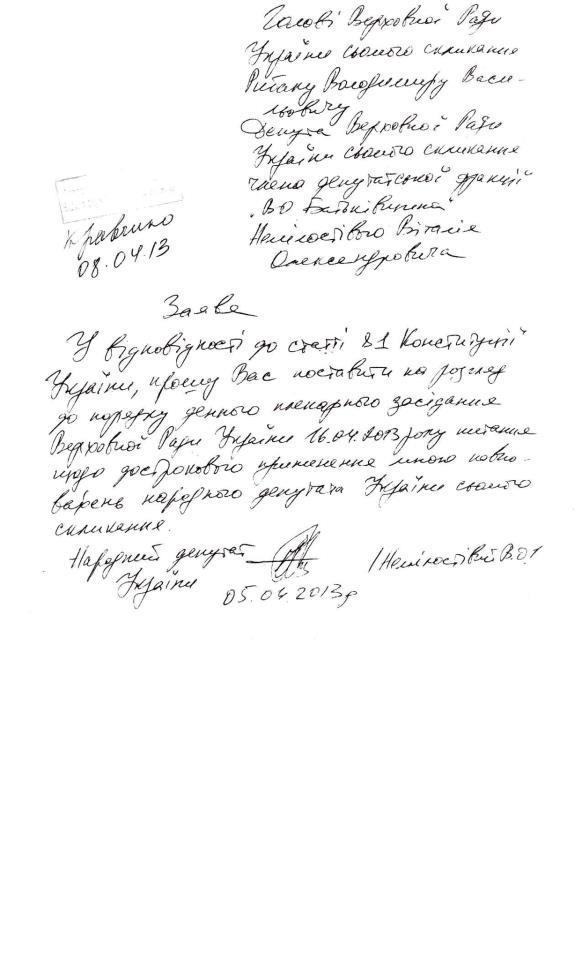 Голові Верховної Ради
України сьомого скликання
Рибаку Володимиру Васи-
льовичу
Депута Верховної Ради
України сьомого скликання
члена депутатської фракції
"ВО Батьківщина"
Немілостівого Віталія
Олександровича
08.04.13
Заява
У відповідності до статті 81 Конституції
України, прошу Вас поставити на розгляд
до порядку денного пленарного засідання
Верховної Ради України 16.04.2013 року питання
щодо дострокового припинення мною повно-
важень народного депутата України сьомого
скликання.
Народний депутат /Немілостівий В.О/
України
05.04.2013р